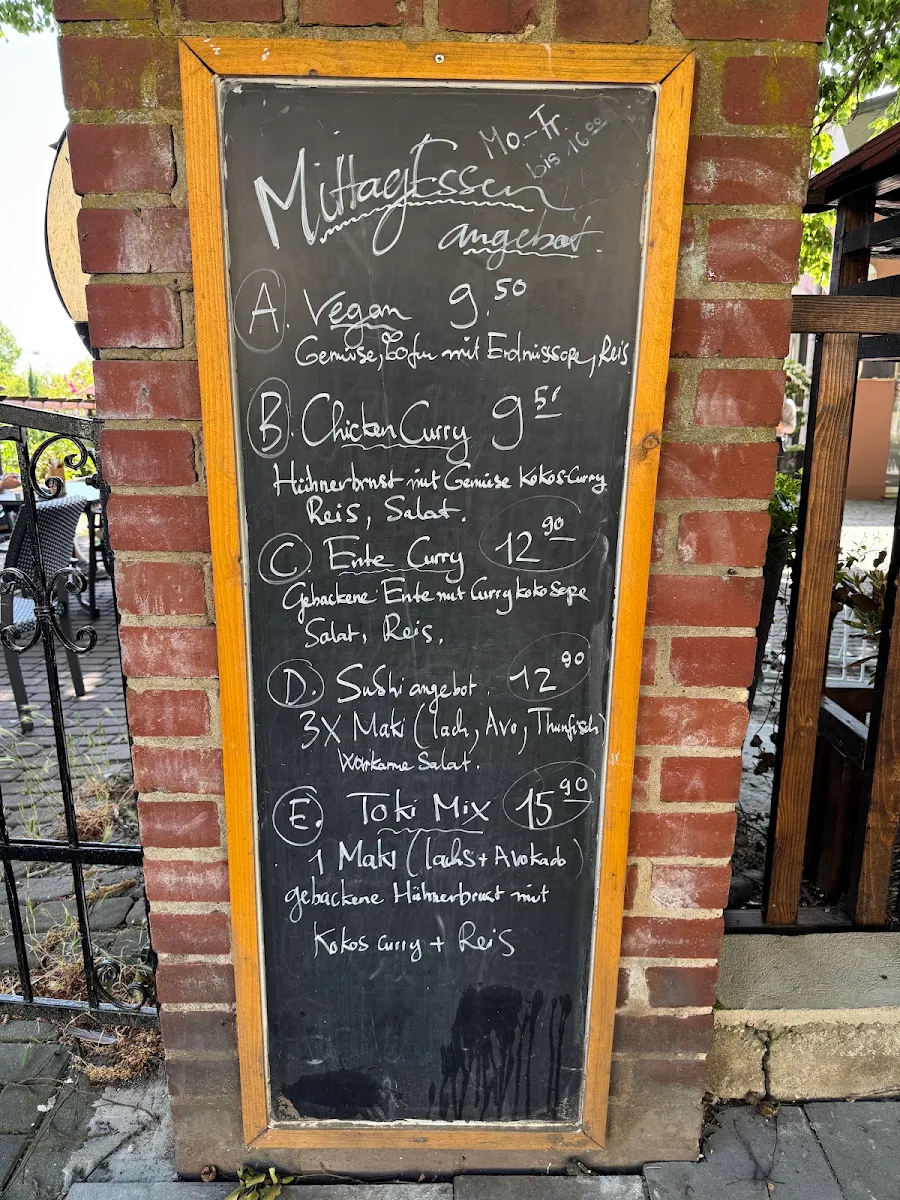 Mo.-Fr.
bis 16⁰⁰
MittagEssen
angebot.
A. Vegan 9.50
Gemüse, Tofu mit Erdnisssope, Reis
B. Chicken Curry 9 50
Hühnerbrust mit Gemüse Kokos-Curry
Reis, Salat.
C. Ente Curry 12 90
Gebackene Ente mit Curry koko Sope
Salat, Reis.
D. Sushi angebot. 12 90
3X Maki (lach, Avo, Thunfisch)
Wakame Salat.
E. Toki Mix 15 90
1 Maki (lachs + Avokado)
gebackene Hühnerbrust mit
Kokos curry + Reis